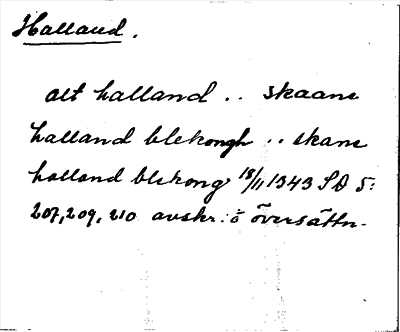 Halland.
alt halland .. skaane
halland blekongh .. skane
halland blekong 18/11 1343 SD 5:
207, 209, 210 avskr. o översättn.